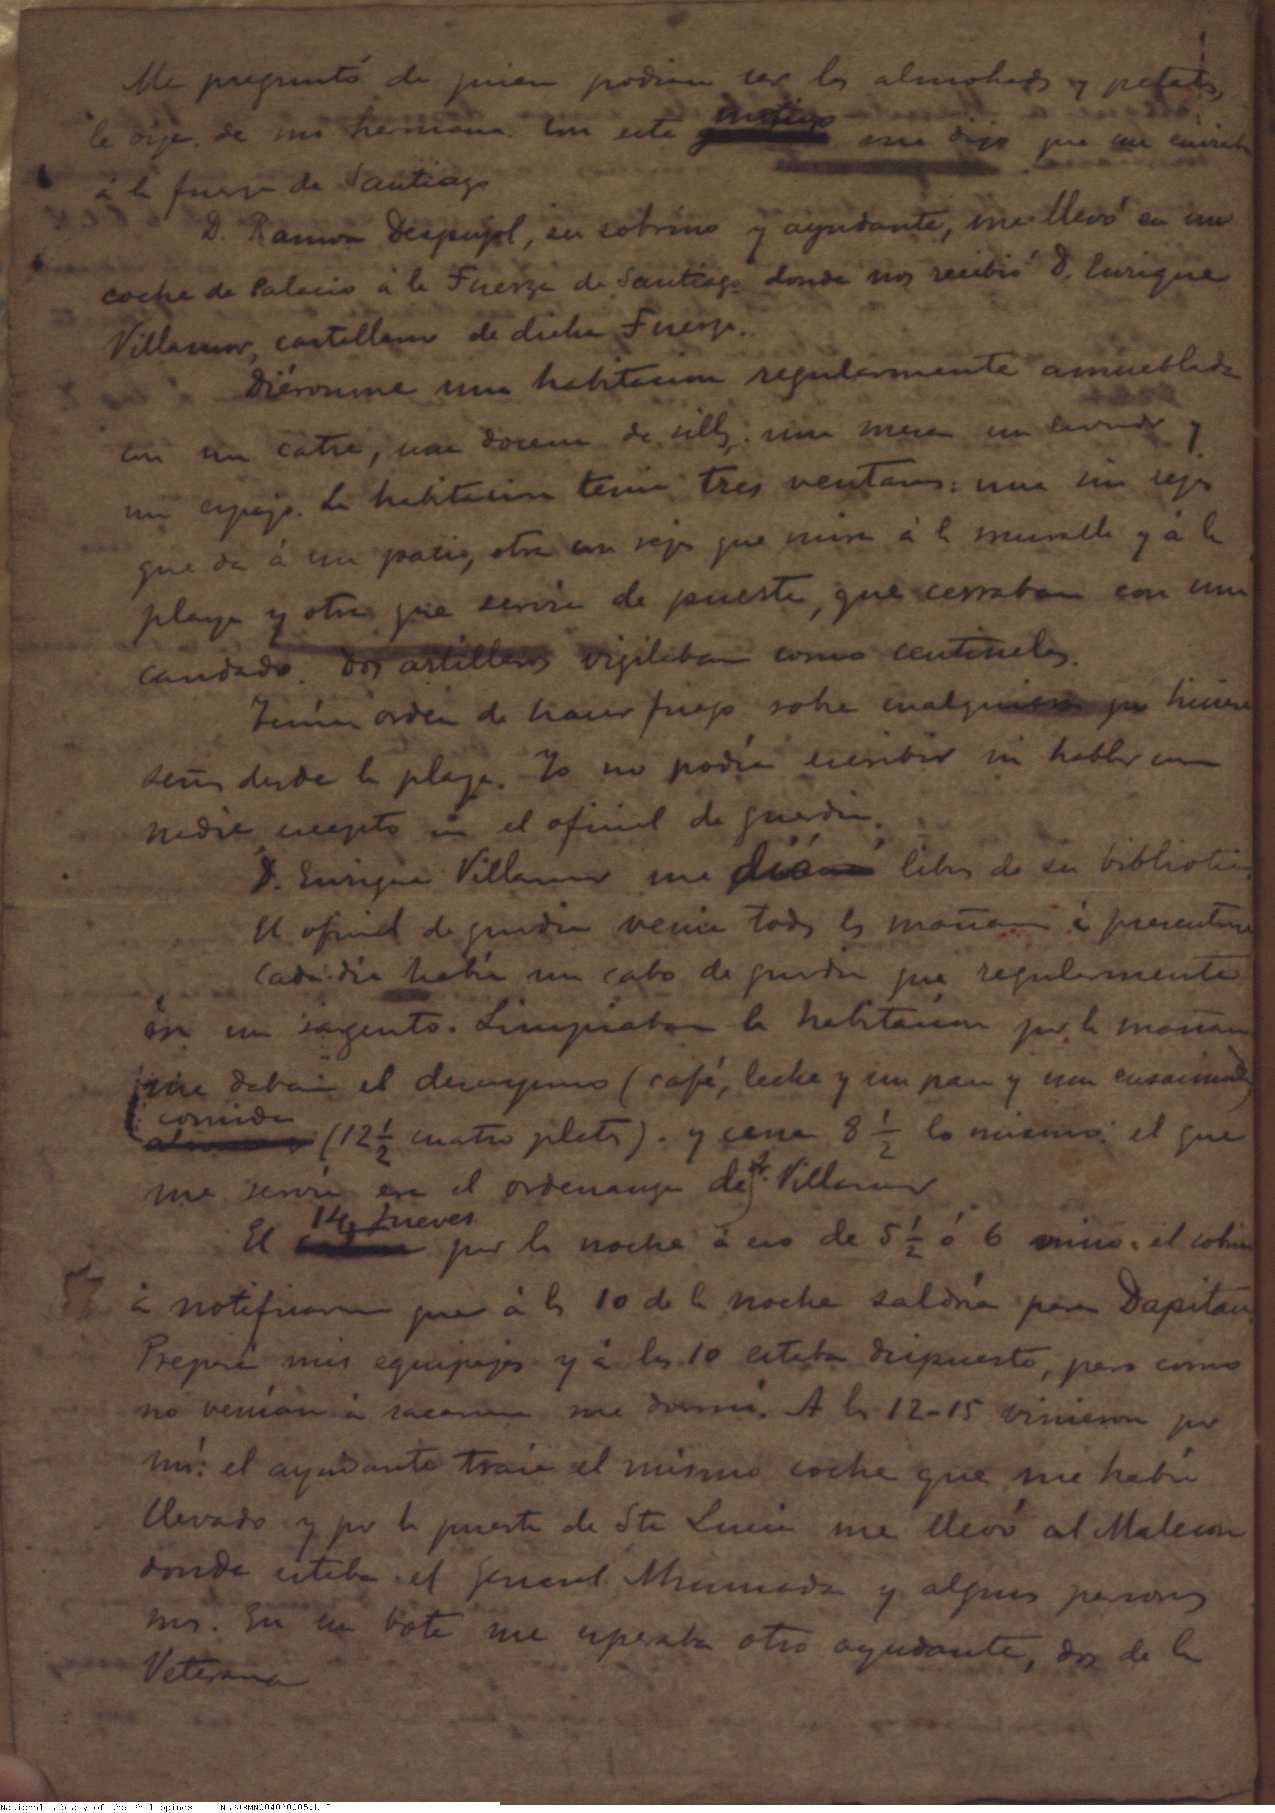 Me preguntó de quien podian ser las almohadas y petates,
le dije de mi hermana. Con este motivo me dijo que me enviaba
á la fuerza de Santiago
D. Ramon Despujol, su sobrino y ayudante, me llevó en un
coche de Palacio á la Fuerza de Santiago donde nos recibió D. Enrique
Villamor, castellano de dicha Fuerza.
Diéronme una habitacion regularmente amueblada
con un catre, una docena de sillas, una mesa un lavado y
un espejo. La habitacion tenia tres ventanas: una sin rejas
que da á un patio, otra con rejas que mira á la muralla y á la
playa y otra que servia de puerta, que cerraban con un
candado. Dos artilleros vigilaban como centinelas.
Tenian orden de hacer fuego sobre cualquiera que hiciera
señas desde la playa. Yo no podia escribir ni hablar con
nadie excepto con el oficial de guardia.
D. Enrique Villamor me dió libros de su biblioteca
El oficial de guardia venia todas las mañanas á presentarse
Cada dia habia un cabo de guardia que regularmente
era un sargento. Limpiaban la habitacion por la mañana
me daban el desayuno (café, leche y un pan y una ensaimada)
comida
(12 1/2 cuatro platos). y cena 8 1/2 lo mismo: el que
me servia era el ordenanza del Sr. Villamor
El 14, Jueves por la noche á eso de 5 1/2 ó 6 vino el sobrino
á notificarme que á las 10 de la noche saldria para Dapitan
Preparé mis equipajes y á las 10 estaba dispuesto, pero como
no venian á sacarme me dormí. A las 12-15 vinieron por
mí: el ayudante traia el mismo coche que me habia
llevado y por la puerta de Sta Lucia me llevó al Malecon
donde estaba el General Ahumada y algunas personas
mas. En un bote me esperaba otro ayudante, dos de la
Veterana
National Library of the Philippines